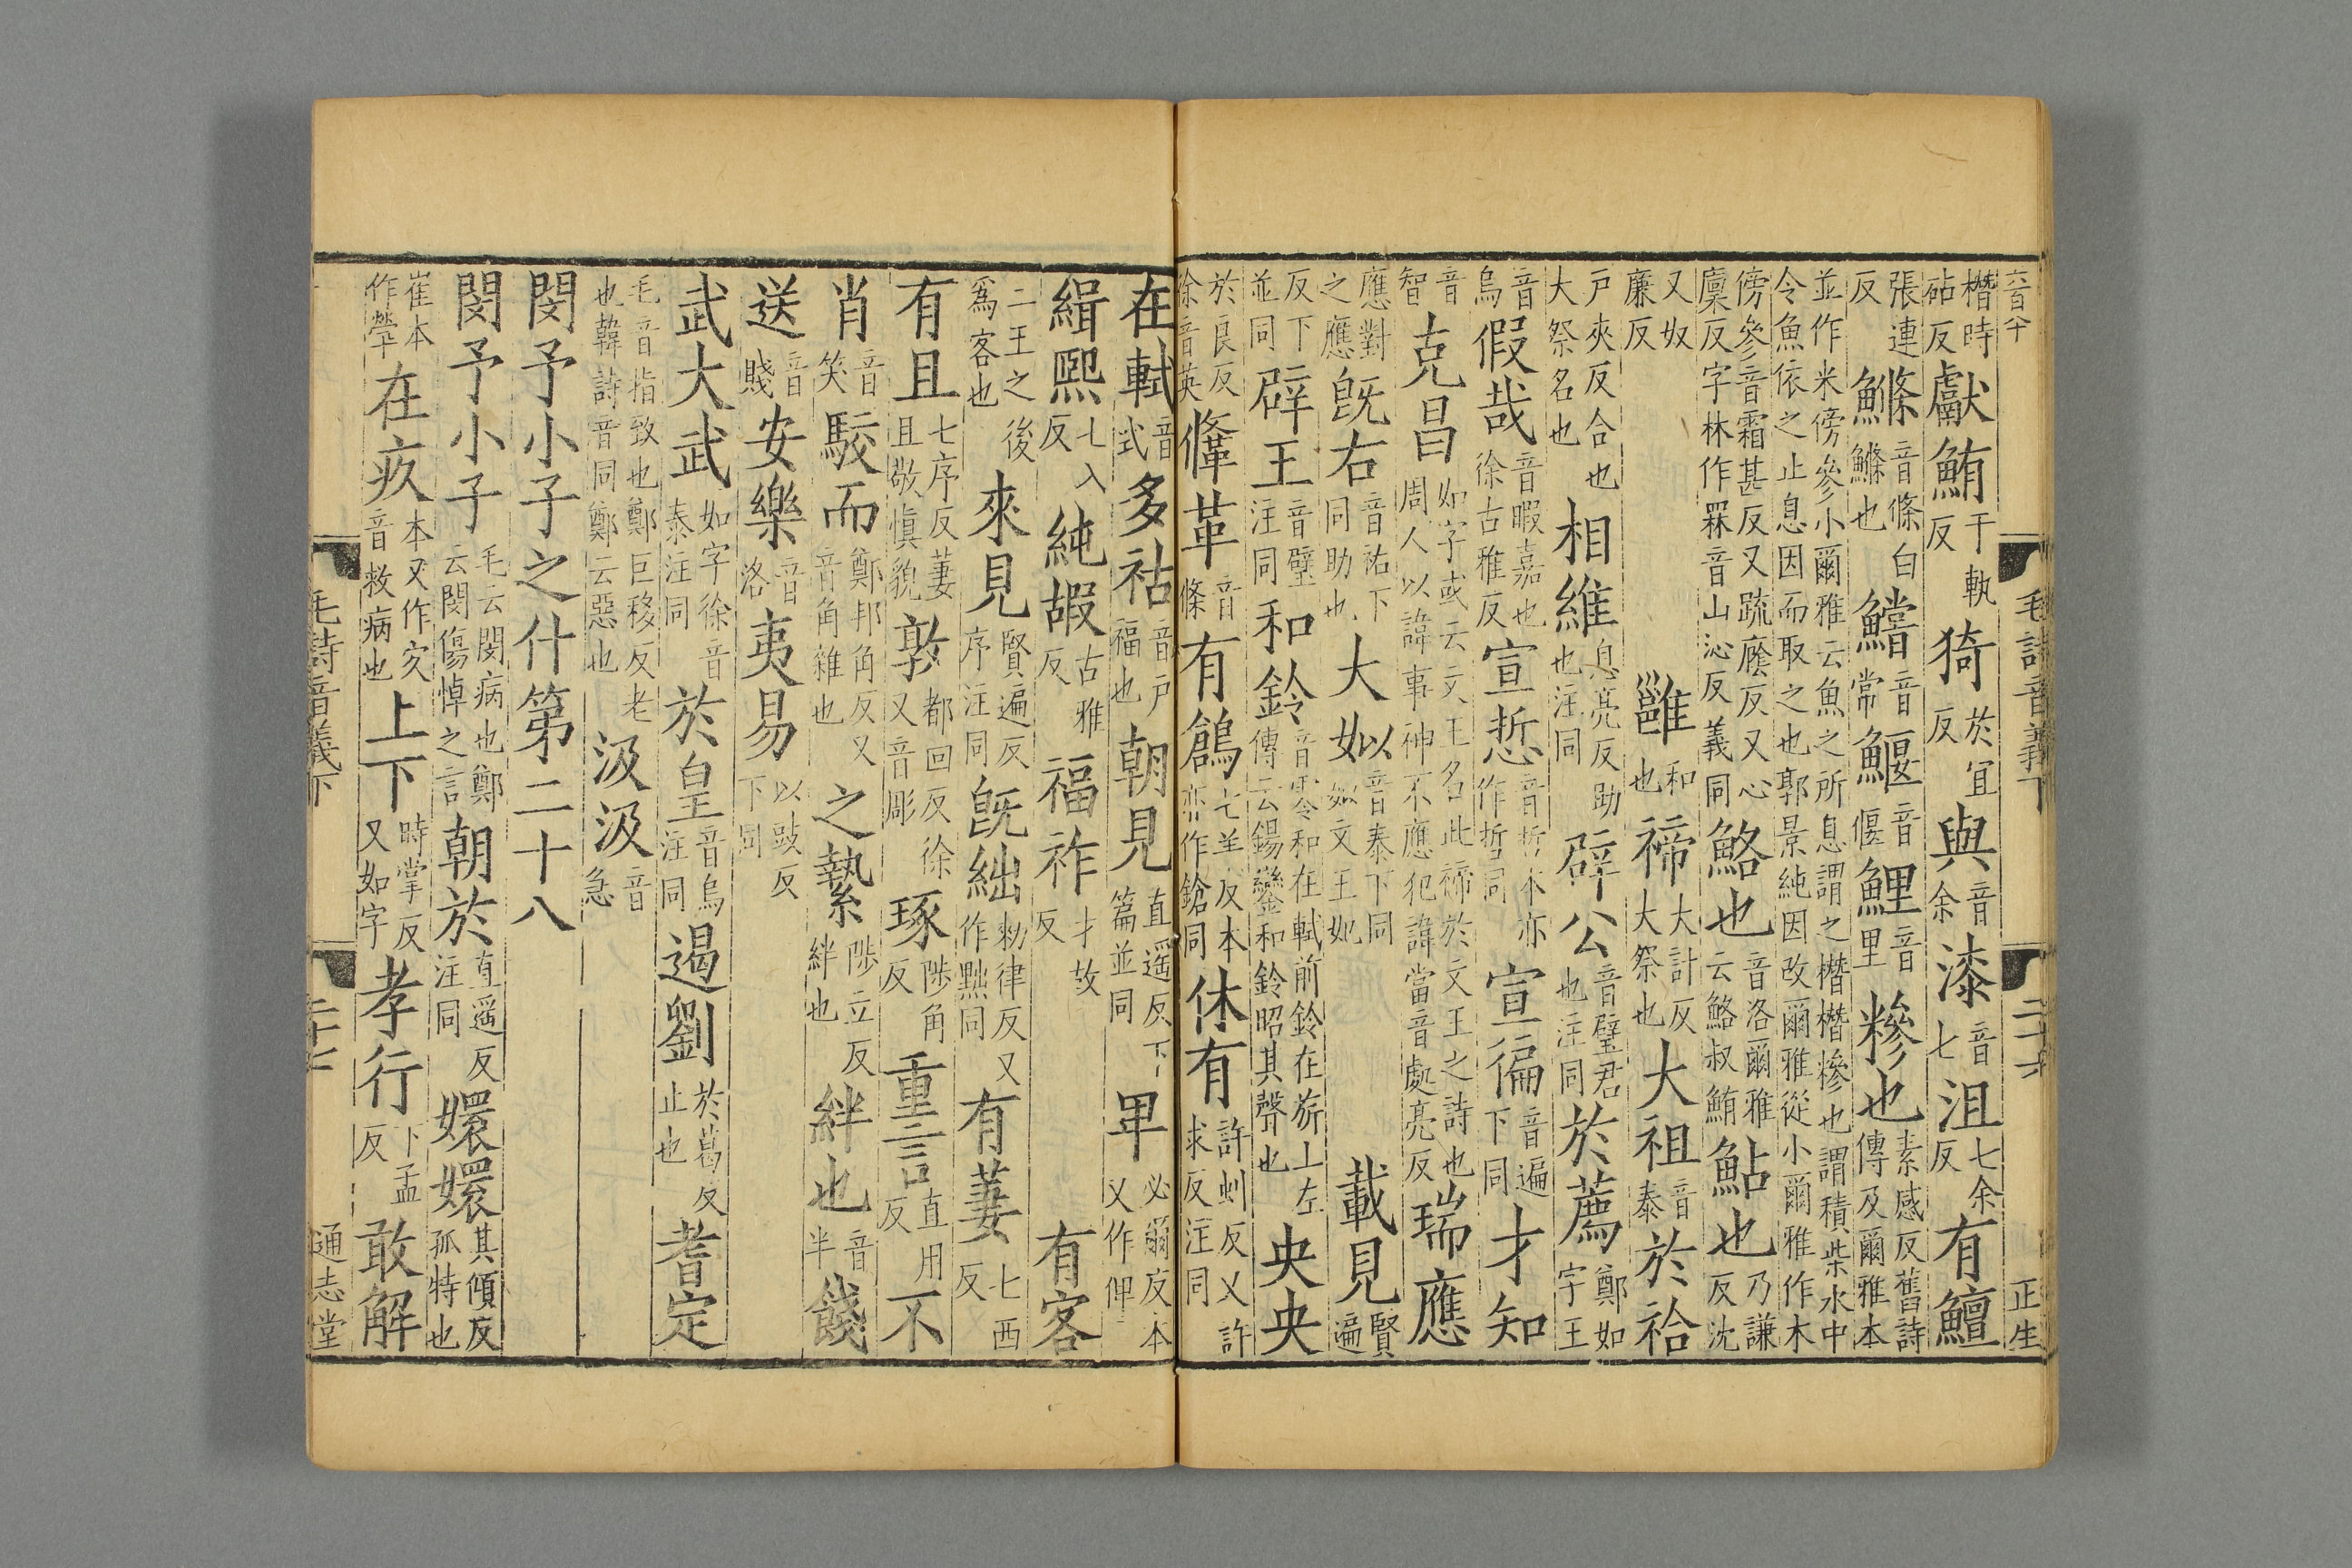 六百个 毛詩音義下 二十六 正生
橬時砧反獻鮪于軌反猗於宜反與音余漆音七沮七余反有鱣
張連反鰷音條白鰷也鱨音常鰋音偃鯉音里糝也素感反舊詩傳及爾雅本
並作米傍參小爾雅云魚之所息謂之橬橬槮也謂積柴水中令魚依之止息因而取之也郭景純因改爾雅從小爾雅作木
傍參音霜甚反又疏廕反又心廩反字林作罧音山沁反義同鮥也音洛爾雅云鮥叔鮪鮎也乃謙反沈
又奴廉反 雝和也禘大計反大祭也大祖音泰於祫
戶夾反合也大祭名也相維息亮反助也注同辟公音璧君也注同於薦鄭如字王
音烏假哉音暇嘉也徐古雅反宣悊音哲本亦作哲同宣徧音遍下同才知
音智克昌如字或云文王名此禘於文王之詩也周人以諱事神不應犯諱當音處亮反瑞應
應對之應既右音祐下同助也大姒音泰下同姒文王妃 載見賢遍
反下並同辟王音璧注同和鈴音零和在軾前鈴在旂上左傳云錫鑾和鈴昭其聲也央央
於良反徐音英鞗革音條有鶬七羊反本亦作鎗同休有許虯反又許求反注同
在軾音式多祜音戶福也朝見直遥反下篇並同卑必爾反本又作俾
緝熙七入反純嘏古雅反福祚才故反 有客
二王之後爲客也來見賢遍反序注同旣絀勑律反又作黜同有萋七西反
有且七序反萋且敬愼貌敦都回反徐又音彫琢陟角反重言直用反不
肖音笑駮而鄭邦角反又音角雜也之縶陟立反絆也絆也音半餞
送音賤安樂音洛夷易以豉反下同
武大武如字徐音泰注同於皇音烏注同遏劉於葛反止也耆定
毛音指致也鄭巨移反老也韓詩音同鄭云惡也汲汲音急
閔予小子之什第二十八
閔予小子毛云閔病也鄭云閔傷悼之言朝於直遥反注同嬛嬛其傾反孤特也
崔本作煢在疚本又作㝌音救病也上下時掌反又如字孝行下孟反敢解
毛詩音義下 二十七 通志堂